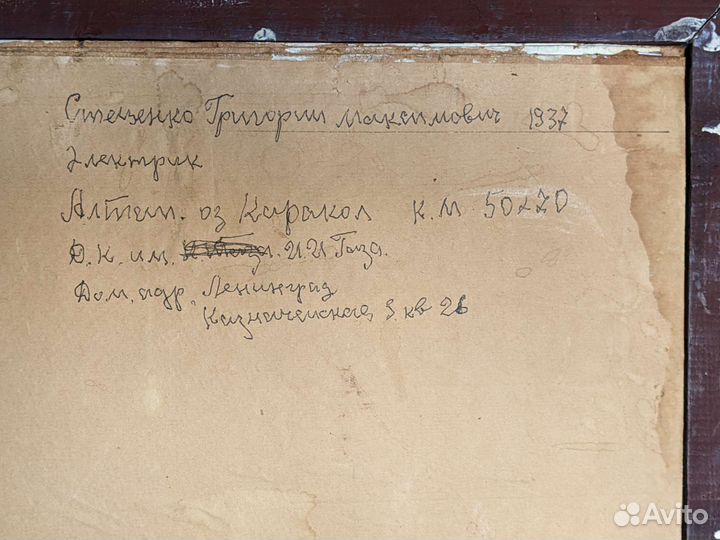 Стеценко Григории Максимович 1937
Электрик
Алтай. оз Каракол К.М 50x70
Д.К. им. И.И Газа.
Дом. адр. Ленинград
Казначейская, 3. кв 26
Avito